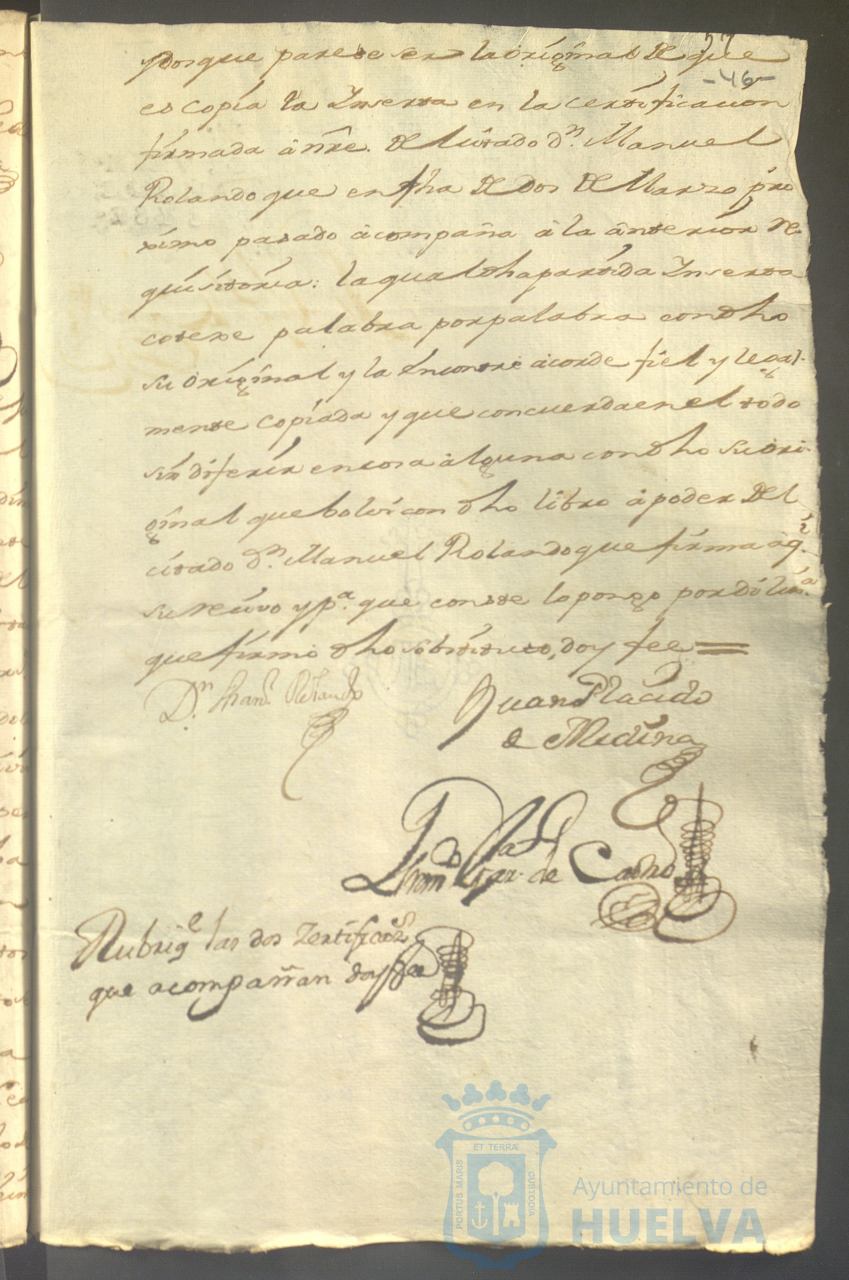 57
-46-
y porque parese ser la original de que
es copia la Inserta en la certificacion
firmada à nre. del citado dn. Manuel
Rolando que en fha de dos de Marzo pro
ximo pasado acompaña à la anterior re
quisitoria: la qual dha partida Inserta
coteje palabra por palabra con dho
su original y la encontre acorde fiel y legal-
mente copiada y que concuerda en el todo
sin diferir en cosa alguna con dho su ori-
ginal que bolvi con dho libro à poder del
citado dn. Manuel Rolando que firma aqi.
su recivo y pa. que conste lo pongo por dilixa.
que firmò dho substituto, doy fee =
Dn. Manl. Rolando
Juan Placido
de Medina
de Castro
Rubrique las dos Zertificazs.
que acompañan doy fee
ET TERRA
PORTUS MARIS
CUSTODIA
Ayuntamiento de
HUELVA